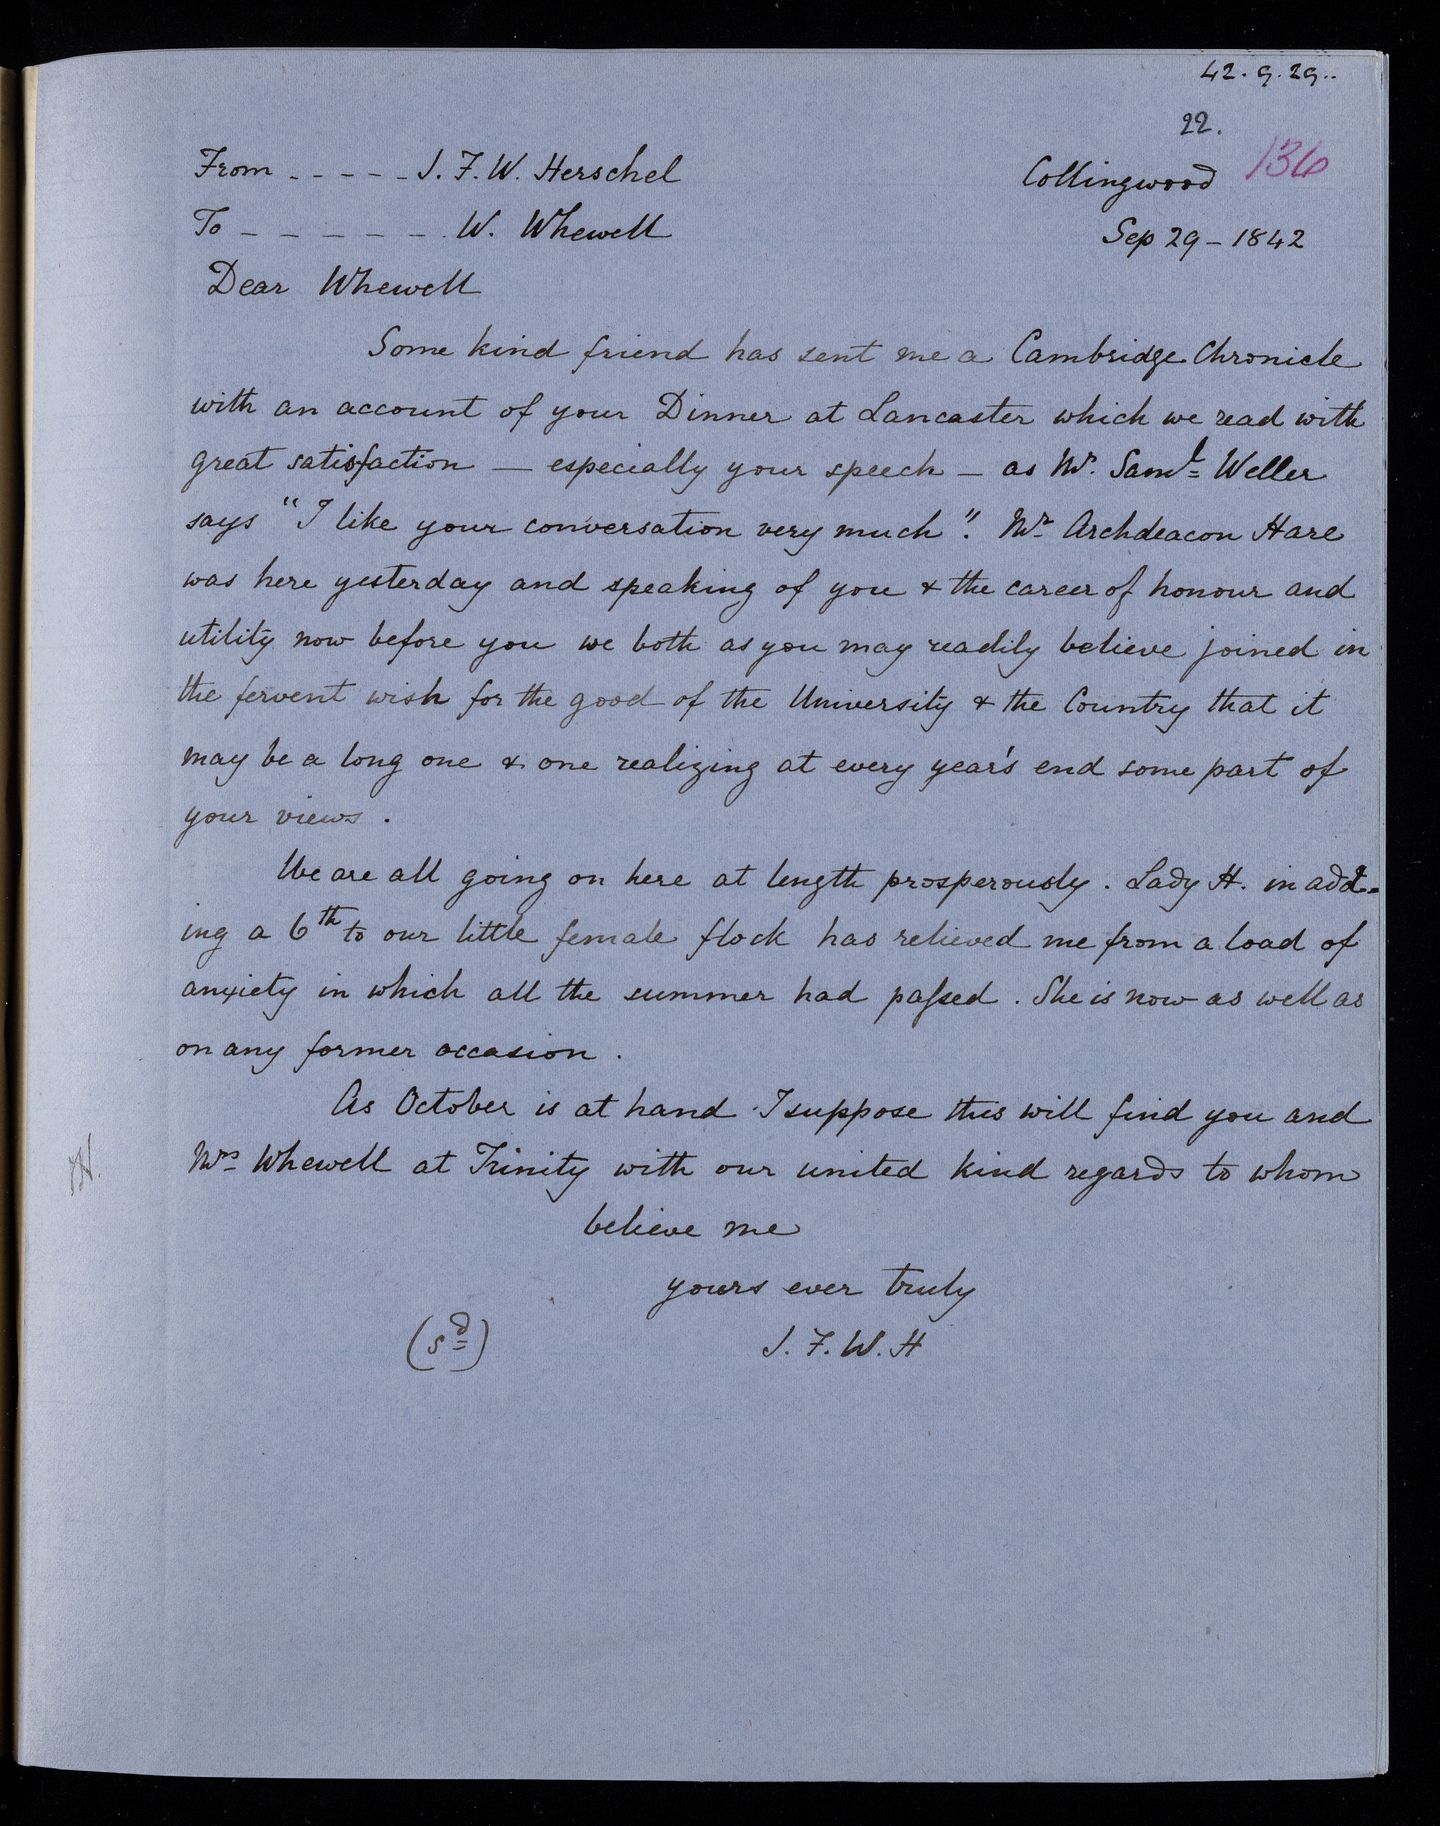 42.9.29..
22.
136
From - - - - - J. F. W. Herschel
Collingwood
To - - - - - - - W. Whewell
Sep 29 - 1842
Dear Whewell
Some kind friend has sent me a Cambridge Chronicle
with an account of your Dinner at Lancaster which we read with
great satisfaction — especially your speech — as Mr. Saml. Weller
says "I like your conversation very much". Mr Archdeacon Hare
was here yesterday and speaking of you & the career of honour and
utility now before you we both as you may readily believe joined in
the fervent wish for the good of the University & the Country that it
may be a long one & one realizing at every year's end some part of
your views.
We are all going on here at length prosperously. Lady H. in add-
ing a 6th to our little female flock has relieved me from a load of
anxiety in which all the summer had paſsed. She is now as well as
on any former occasion.
As October is at hand I suppose this will find you and
Mrs Whewell at Trinity with our united kind regards to whom
believe me
yours ever truly
(sd) J. F. W. H